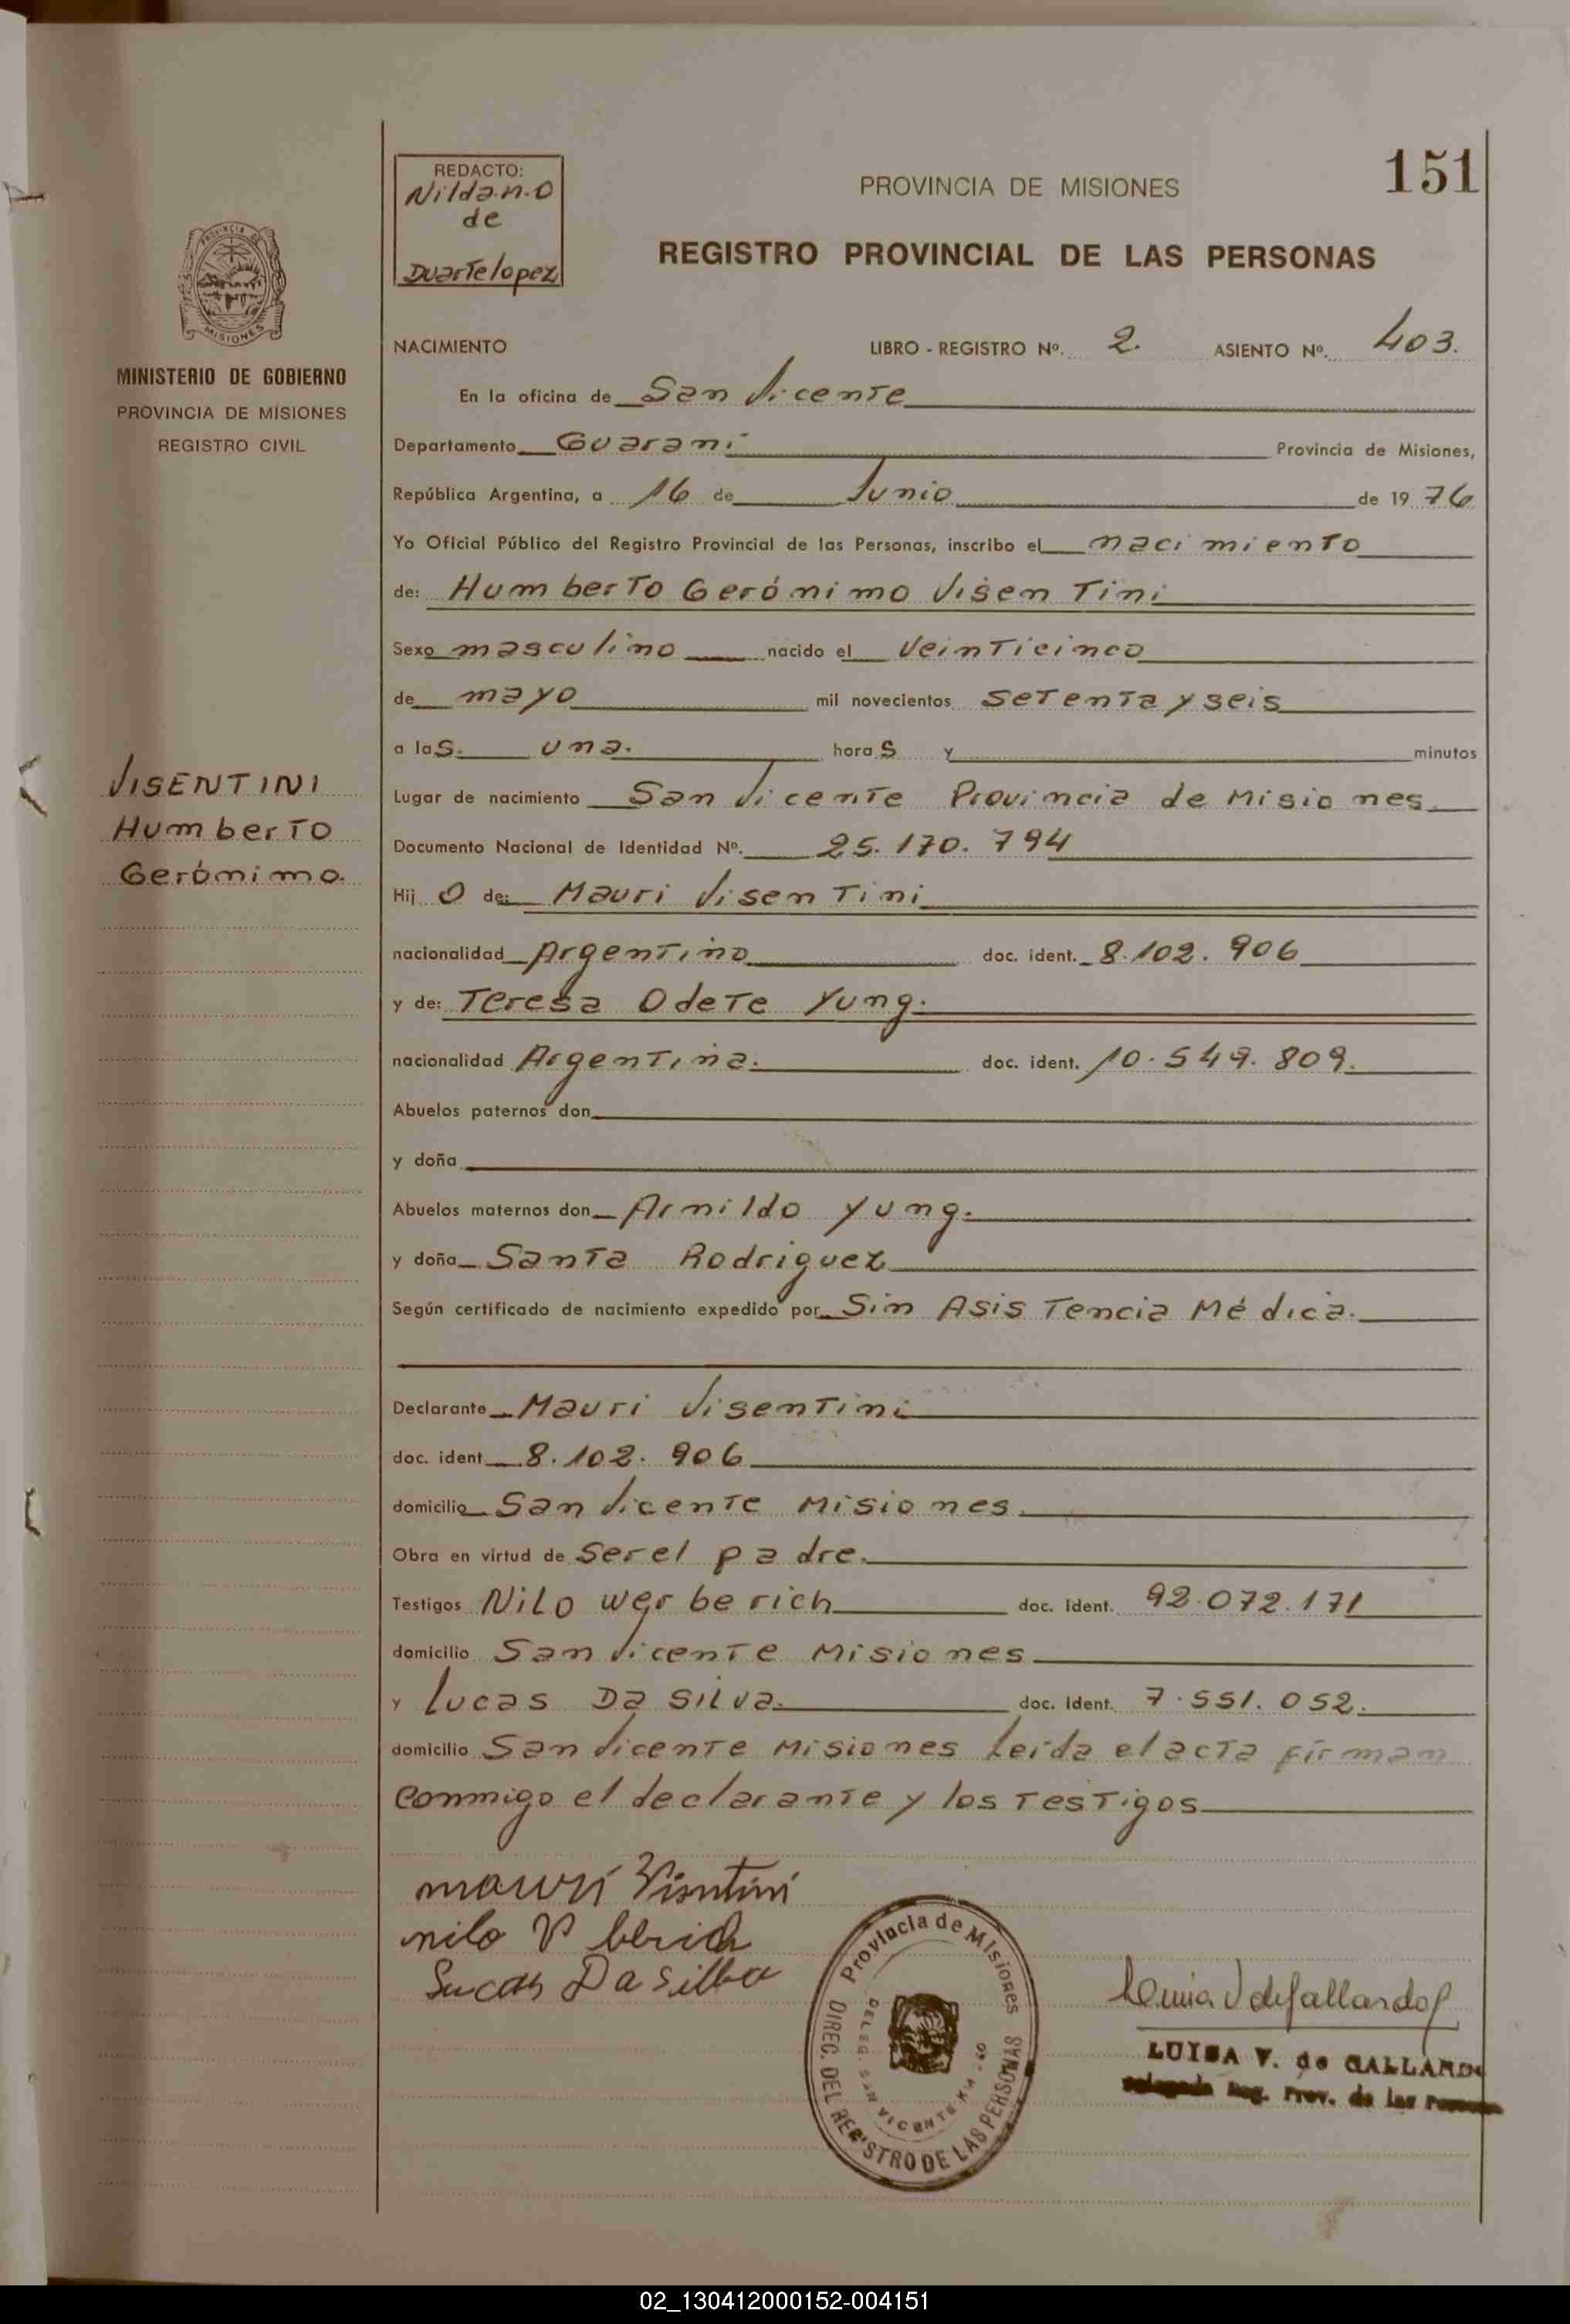 151
REDACTO:
Nilda.n.O
de
Duartelopez
PROVINCIA DE MISIONES
REGISTRO PROVINCIAL DE LAS PERSONAS
PROVINCIA DE
MISIONES
MINISTERIO DE GOBIERNO
PROVINCIA DE MISIONES
REGISTRO CIVIL
NACIMIENTO LIBRO - REGISTRO Nº. 2. ASIENTO Nº. 403.
En la oficina de San Vicente
Departamento Guaraní Provincia de Misiones,
República Argentina, a 16 de Junio de 1976
Yo Oficial Público del Registro Provincial de las Personas, inscribo el nacimiento
de: Humberto Gerónimo Visentini
Sexo masculino nacido el Veinticinco
de mayo mil novecientos setenta y seis
a las. una. horas y minutos
VISENTINI
Humberto
Gerónimo.
Lugar de nacimiento San Vicente Provincia de Misiones
Documento Nacional de Identidad Nº. 25.170.794
Hijo de: Mauri Visentini
nacionalidad Argentino doc. ident. 8.102.906
y de: Teresa Odete Yung.
nacionalidad Argentina. doc. ident. 10.549.809.
Abuelos paternos don
y doña
Abuelos maternos don Arnildo Yung.
y doña Santa Rodriguez
Según certificado de nacimiento expedido por Sin Asistencia Médica.
Declarante Mauri Visentini
doc. ident 8.102.906
domicilio San Vicente Misiones
Obra en virtud de Ser el padre.
Testigos Nilo Werberich doc. ident. 92.072.171
domicilio San Vicente Misiones
y Lucas Da Silva. doc. ident. 7.551.052.
domicilio San Vicente Misiones Leida el acta firman
conmigo el declarante y los testigos
mauri Visntini
nilo V berich
Lucas Da Silba
Provincia de Misiones
DIREC. DEL REGISTRO DE LAS PERSONAS
DELEG. SAN VICENTE
Luisa V de Gallardo
LUISA V. de GALLARDO
Delegada Reg. Prov. de las Personas
02_130412000152-004151